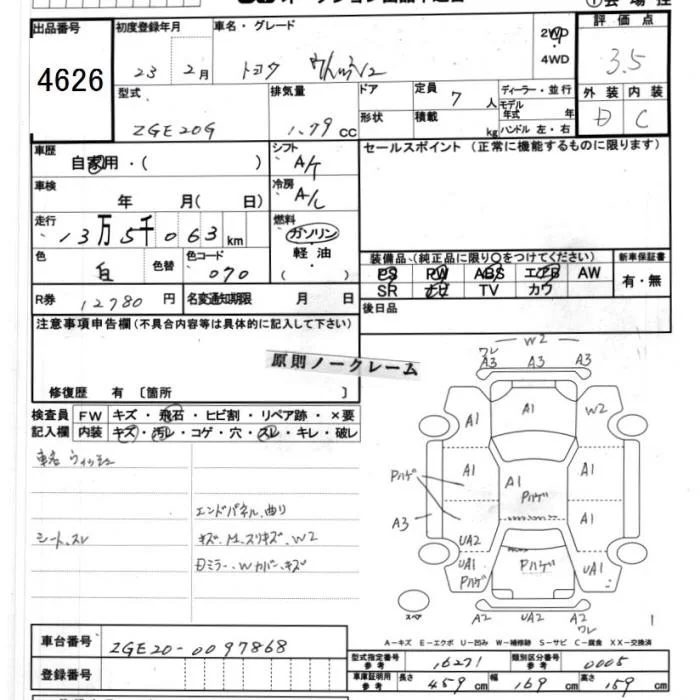 出品番号 初度登録年月 車名・グレード 2WD 4WD 評価点
4626 23 2月 トヨタ 3.5
型式 排気量 ドア 定員 7 人 ディーラー・並行 外装 内装
ZGE20G 1.79 cc 形状 積載 kg モデル年式 年 ハンドル 左・右 D C
車歴 自家用・( ) シフト A/T セールスポイント (正常に機能するものに限ります)
車検 年 月( 日) 冷房 A/C
走行 13万5千063km 燃料 ガソリン 軽油 ( )
色 白 色替 色コード 070
装備品 (純正品に限り○をつけてください) 新車保証書
PS PW ABS エアB AW 有・無
SR ナビ TV カワ
R券 12780 円 名変通知期限 月 日 後日品
注意事項申告欄(不具合内容等は具体的に記入して下さい)
原則ノークレーム
修復歴 有 〔箇所 〕
検査員 FW キズ・飛石・ヒビ割・リペア跡・×要
記入欄 内装 キズ・汚レ・コゲ・穴・スレ・キレ・破レ
車名 ウィッシュ
エンドパネル、曲り
シート、スレ
W2
ワレ
A3 A3 A3
A1 W2
A1 A1 A1
Pハゲ Pハゲ
A3 A1
UA2
UA1 Pハゲ Pハゲ UA1
スペア
A2 UA2 A2
ワレ
A-キズ E-エクボ U-凹み W-補修跡 S-サビ C-腐食 XX-交換済
車台番号 ZGE20-0097868
登録番号
型式指定番号 参考 16271 類別区分番号 参考 0005
車庫証明用 参考 長さ 459 cm 幅 169 cm 高さ 159 cm